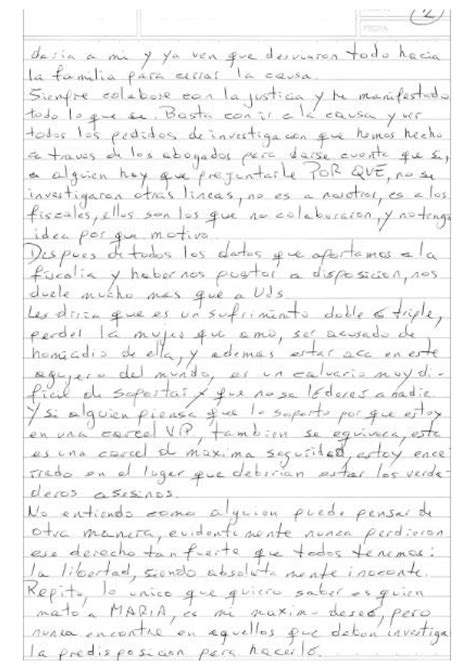 12
FECHA
decia a mi y ya ven que desviaron todo hacia
la familia para cerrar la causa.
Siempre colabore con la justicia y he manifestado
todo lo que se. Basta con ir a la causa y ver
todos los pedidos de investigacion que hemos hecho
a traves de los abogados para darse cuenta que si,
a alguien hay que preguntarle POR QUÉ, no se
investigaron otras lineas, no es a nosotros, es a los
fiscales, ellos son los que no colaboraron, y no tengo
idea por que motivo.
Despues de todos los datos que aportamos a la
fiscalia y habernos puesto a disposicion, nos
duele mucho mas que a Uds.
Les diria que es un sufrimiento doble o triple,
perder la mujer que amo, ser acusado de
homicidio de ella, y ademas estar aca en este
agujero del mundo, es un calvario muy di-
ficil de soportar y que no se lo deseo a nadie.
Y si alguien piensa que lo soporto por que estoy
en una carcel VIP, tambien se equivoca, esta
es una carcel de maxima seguridad, estoy ence
rrado en el lugar que deberian estar los verda
deros asesinos.
No entiendo como alguien puede pensar de
otra manera, evidentemente nunca perdieron
ese derecho tan fuerte que todos tenemos:
la libertad, siendo absolutamente inocente.
Repito, lo unico que quiero saber es quien
mato a MARIA, es mi maximo deseo, pero
nunca encontre en aquellos que deben investiga
la predisposicion para hacerlo.